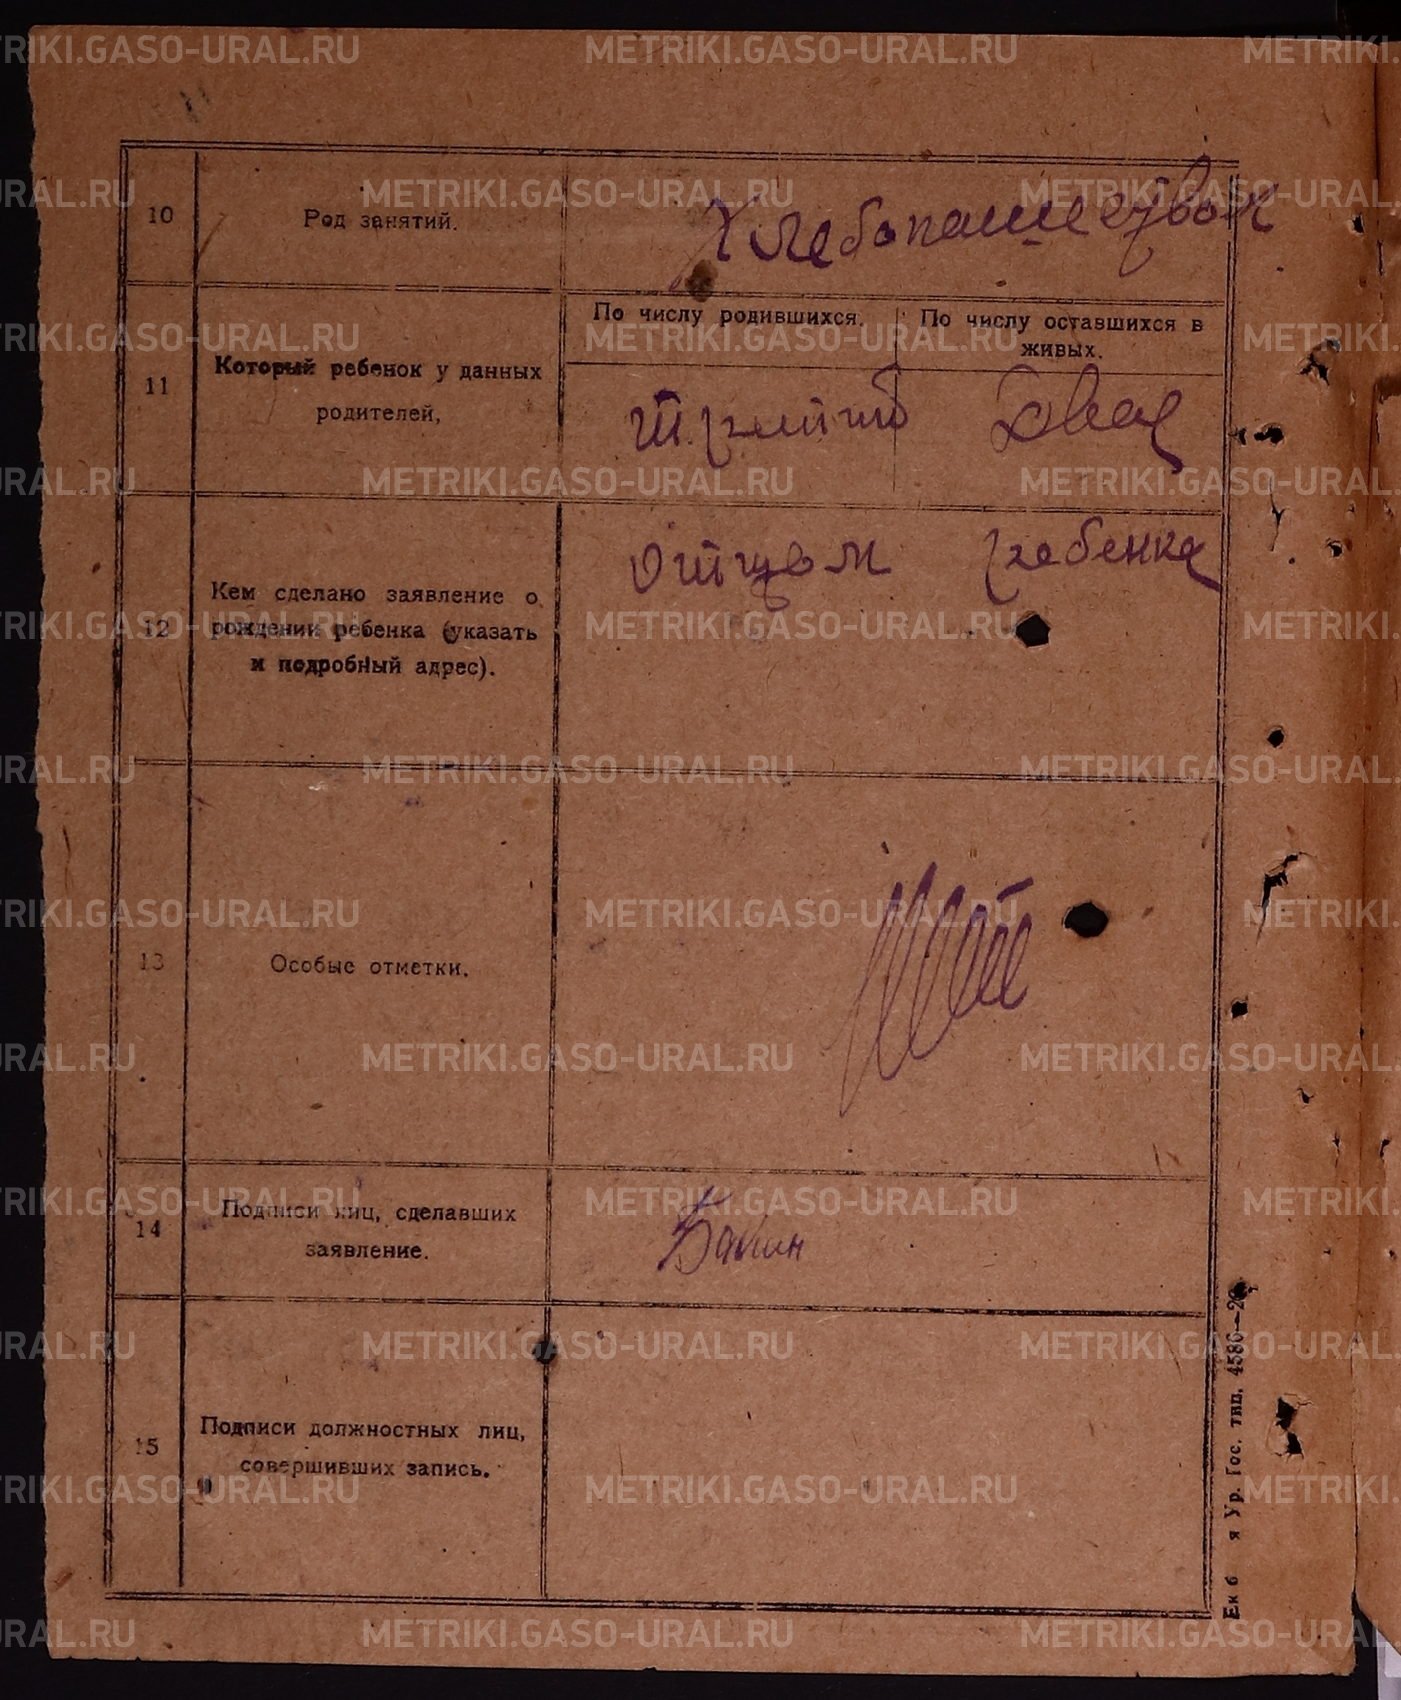 10
Род занятий.
Хлебопашеством
11
Который ребенок у данных
родителей,
По числу родившихся.
По числу оставшихся в
живых.
третий
Два
12
Кем сделано заявление о
рождении ребенка (указать
и подробный адрес).
отцом ребенка
13
Особые отметки.
14
Подписи лиц, сделавших
заявление.
15
Подписи должностных лиц,
совершивших запись.
Ур. Гос. тип. 4586—20
METRIKI.GASO-URAL.RU